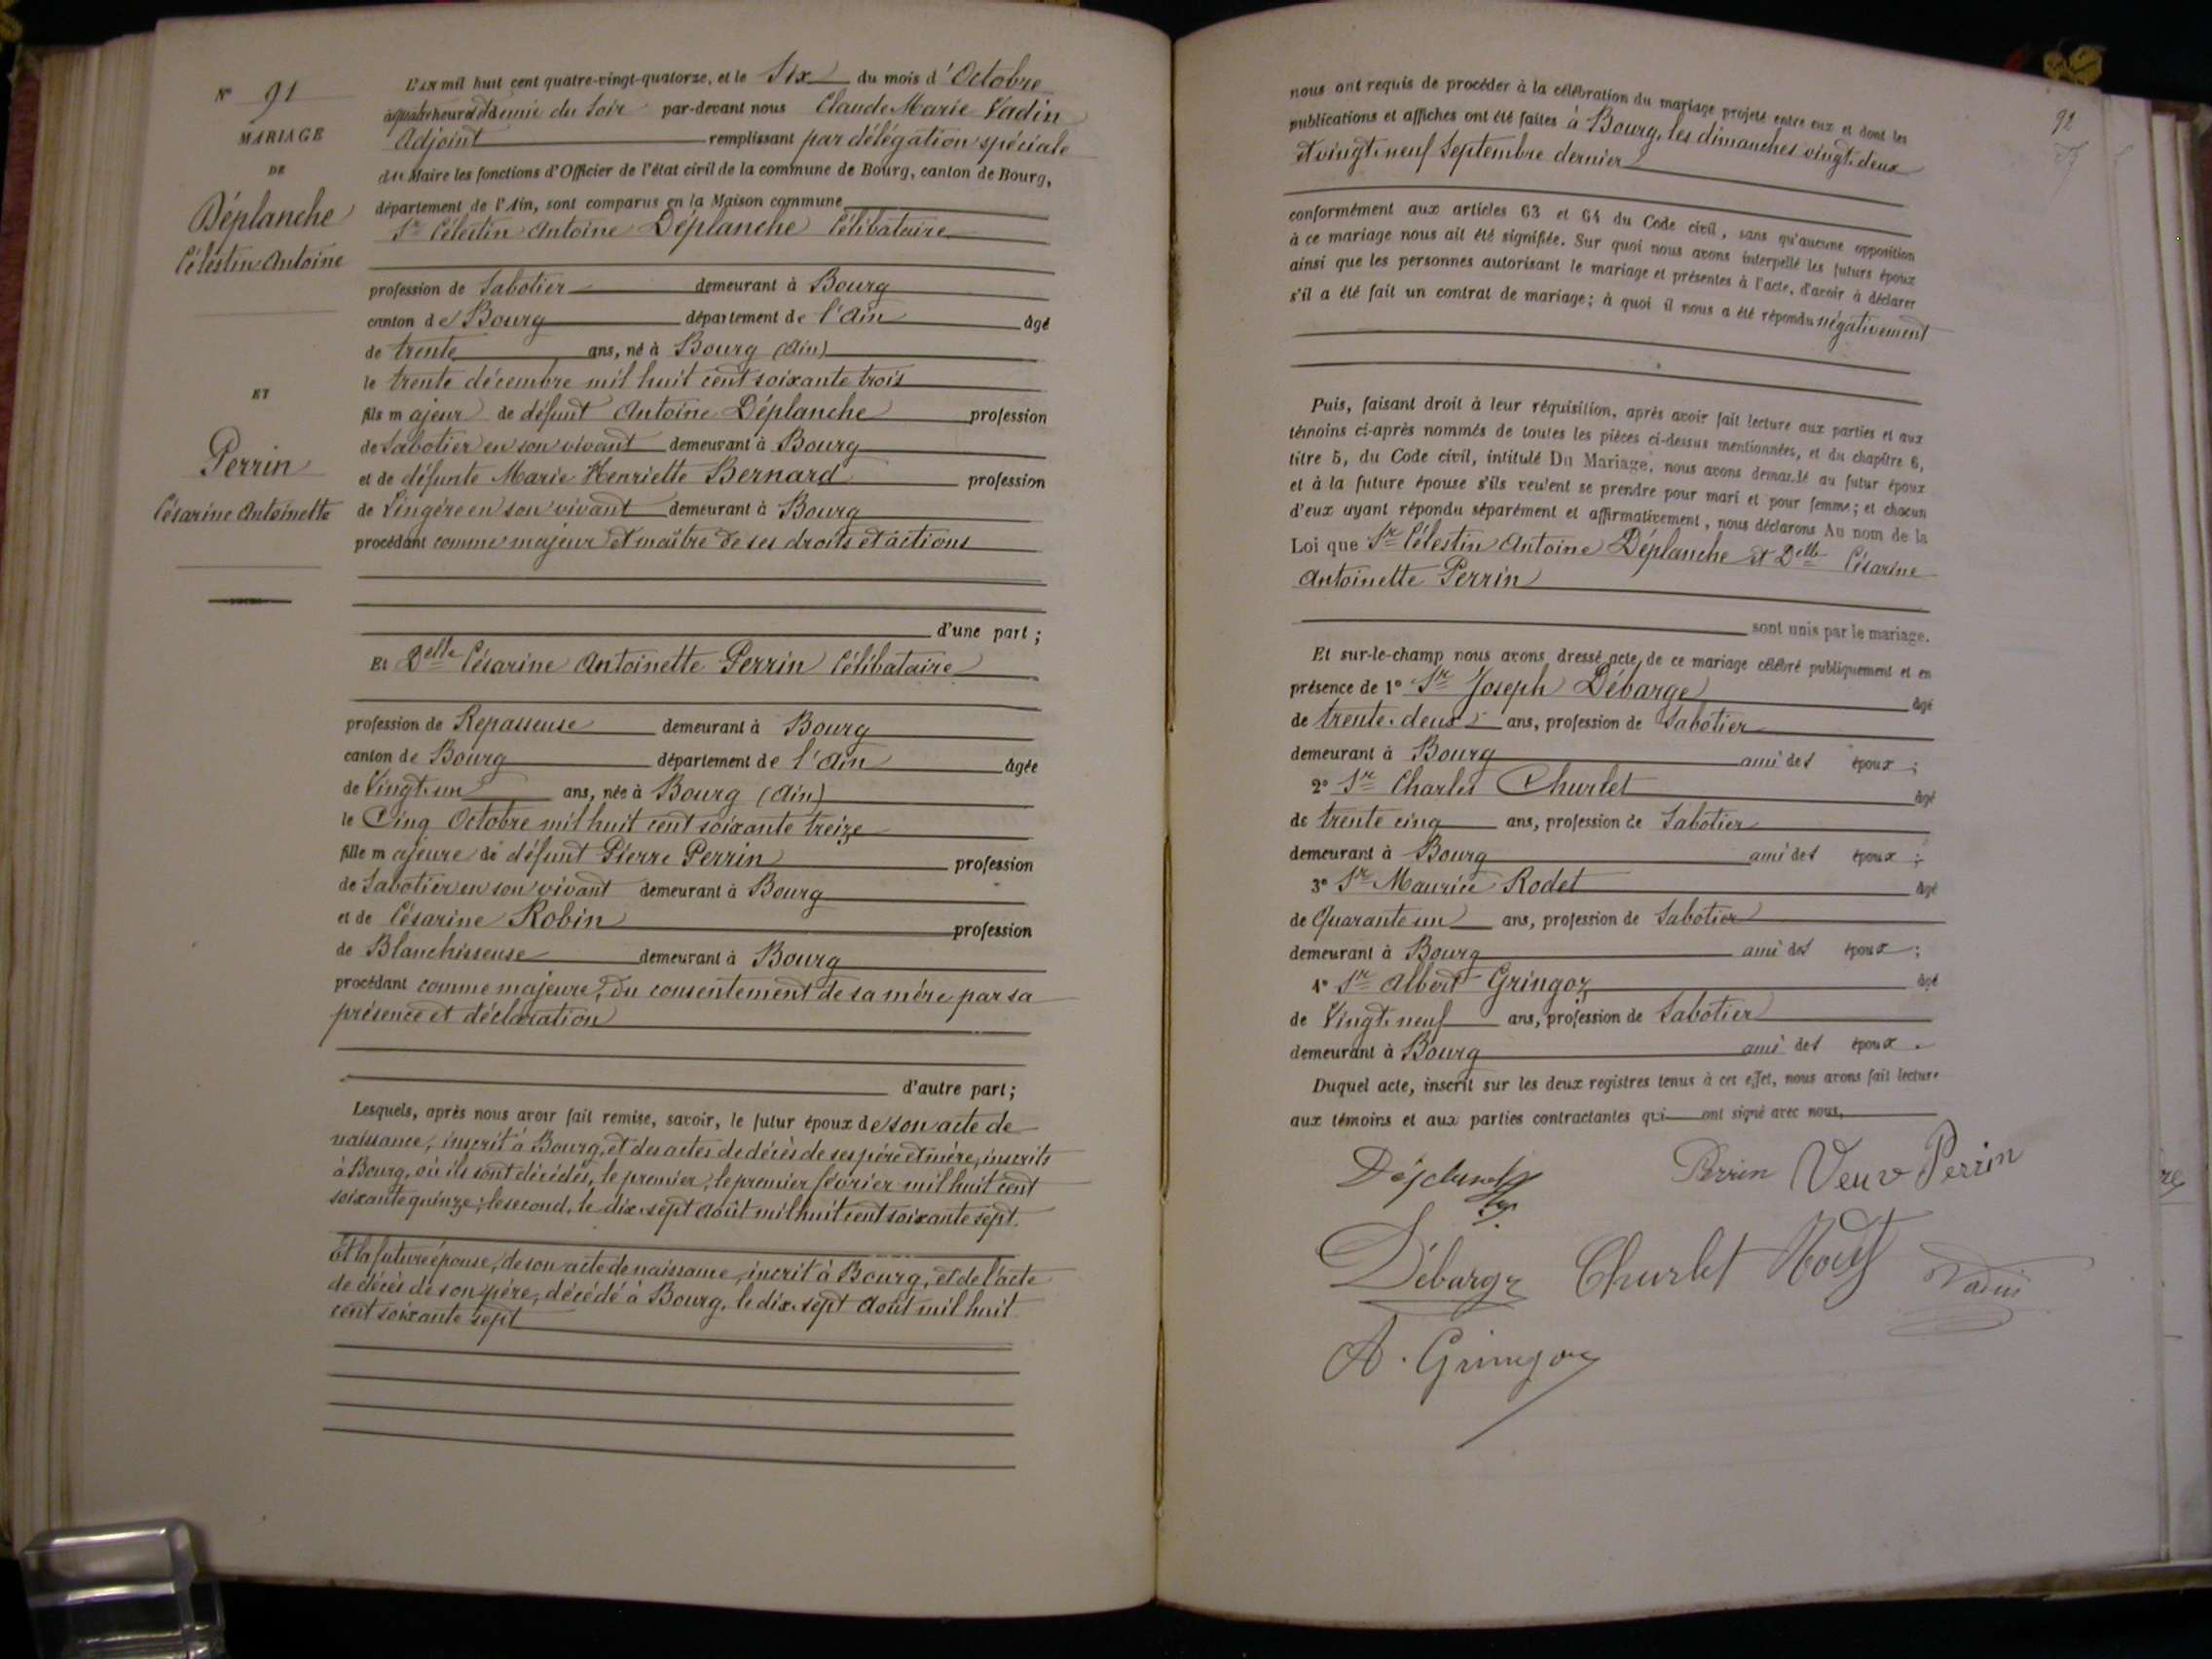 N° 91
MARIAGE
DE
Déplanche
Célestin Antoine
ET
Perrin
Césarine Antoinette
L'AN mil huit cent quatre-vingt-quatorze, et le Six du mois d'Octobre
à quatre heures et demie du soir par-devant nous Claude Marie Vadin
Adjoint remplissant par délégation spéciale
du Maire les fonctions d'Officier de l'état civil de la commune de Bourg, canton de Bourg,
département de l'Ain, sont comparus en la Maison commune
Sr Célestin Antoine Déplanche Célibataire
profession de Sabotier demeurant à Bourg
canton de Bourg département de l'Ain âgé
de trente ans, né à Bourg (Ain)
le trente décembre mil huit cent soixante trois
fils majeur de défunt Antoine Déplanche profession
de Sabotier en son vivant demeurant à Bourg
et de défunte Marie Henriette Bernard profession
de Lingère en son vivant demeurant à Bourg
procédant comme majeur et maître de ses droits et actions
d'une part ;
Et Delle Césarine Antoinette Perrin Célibataire
profession de Repasseuse demeurant à Bourg
canton de Bourg département de l'Ain âgée
de Vingt-un ans, née à Bourg (Ain)
le Cinq Octobre mil huit cent soixante treize
fille majeure de défunt Pierre Perrin profession
de Sabotier en son vivant demeurant à Bourg
et de Césarine Robin profession
de Blanchisseuse demeurant à Bourg
procédant comme majeure, du consentement de sa mère par sa
présence et déclaration
d'autre part ;
Lesquels, après nous avoir fait remise, savoir, le futur époux de son acte de
naissance, inscrit à Bourg, et des actes de décès de ses père et mère, inscrits
à Bourg, où ils sont décédés, le premier, le premier février mil huit cent
soixante quinze ; le second, le dix-sept Août mil huit cent soixante sept.
Et la future épouse, de son acte de naissance, incrit à Bourg, et de l'acte
de décès de son père, décédé à Bourg, le dix-sept Août mil huit
cent soixante sept
92
nous ont requis de procéder à la célébration du mariage projeté entre eux et dont les
publications et affiches ont été faites à Bourg, les dimanches vingt-deux
et vingt-neuf Septembre dernier
conformément aux articles 63 et 64 du Code civil, sans qu'aucune opposition
à ce mariage nous ait été signifiée. Sur quoi nous avons interpellé les futurs époux
ainsi que les personnes autorisant le mariage et présentes à l'acte, d'avoir à déclarer
s'il a été fait un contrat de mariage ; à quoi il nous a été répondu négativement
Puis, faisant droit à leur réquisition, après avoir fait lecture aux parties et aux
témoins ci-après nommés de toutes les pièces ci-dessus mentionnées, et du chapitre 6,
titre 5, du Code civil, intitulé Du Mariage, nous avons demandé au futur époux
et à la future épouse s'ils veulent se prendre pour mari et pour femme ; et chacun
d'eux ayant répondu séparément et affirmativement, nous déclarons Au nom de la
Loi que Sr Célestin Antoine Déplanche et Delle Césarine
Antoinette Perrin
sont unis par le mariage.
Et sur-le-champ nous avons dressé acte de ce mariage célébré publiquement et en
présence de 1° Sr Joseph Débarge âgé
de trente-deux ans, profession de Sabotier
demeurant à Bourg ami des époux ;
2° Sr Charles Churlet âgé
de trente cinq ans, profession de Sabotier
demeurant à Bourg ami des époux ;
3° Sr Maurice Rodet âgé
de Quarante un ans, profession de Sabotier
demeurant à Bourg ami des époux ;
4° Sr Albert Gringoz âgé
de Vingt-neuf ans, profession de Sabotier
demeurant à Bourg ami des époux .
Duquel acte, inscrit sur les deux registres tenus à cet effet, nous avons fait lecture
aux témoins et aux parties contractantes qui ont signé avec nous,
Perrin Veuve Perrin
Débarge Churlet Rodet Vadin
A. Gringoz